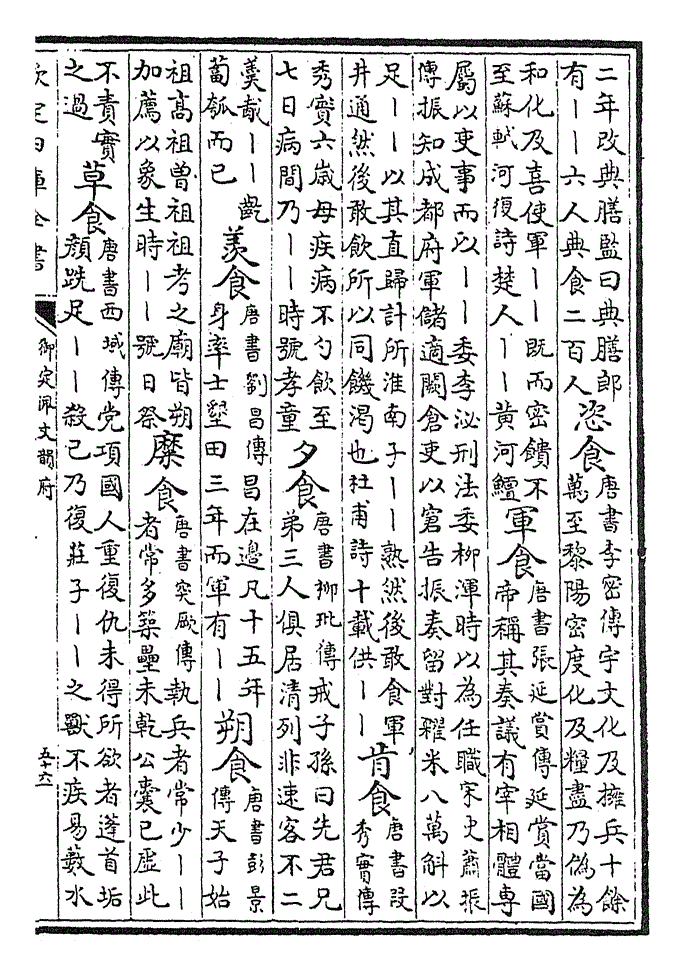 二年改典膳監曰典膳郎
有——六人典食二百人
恣食
唐書李密傳宇文化及擁兵十餘
萬至黎陽密度化及糧盡乃偽為
和化及喜使軍——既而密饋不
至蘇軾河復詩楚人——黄河鱣
軍食
唐書張延賞傳延賞當國
帝稱其奏議有宰相體專
屬以吏事而以——委李泌刑法委柳渾時以為任職宋史蕭振
傳振知成都府軍儲適闕倉吏以窘告振奏留對糴米八萬斛以
足——以其直歸計所淮南子——熟然後敢食軍
井通然後敢飲所以同饑渴也杜甫詩十載供——
肯食
唐書段
秀實傳
秀實六歲母疾病不勺飲至
七日病間乃——時號孝童
夕食
唐書柳玭傳戒子孫曰先君兄
弟三人俱居清列非速客不二
羹胾——齕
蔔瓠而已
羡食
唐書劉昌傳昌在邊凡十五年
身率士墾田三年而軍有——
朔食
唐書彭景
傳天子始
祖高祖曾祖祖考之廟皆朔
加薦以象生時——號日祭
糜食
唐書突厥傳執兵者常少——
者常多築壘未乾公囊已虛此
不責實
之過
草食
唐書西域傳党項國人重復仇未得所欲者蓬首垢
顔跣足——殺已乃復莊子——之獸不疾易藪水
欽定四庫全書
御定佩文韻府
五十六